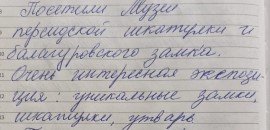 Посетили Музеи
персидской шкатулки и
балагуровского замка.
Очень интересная экспози-
ция: уникальные замки,
шкатулки, утварь